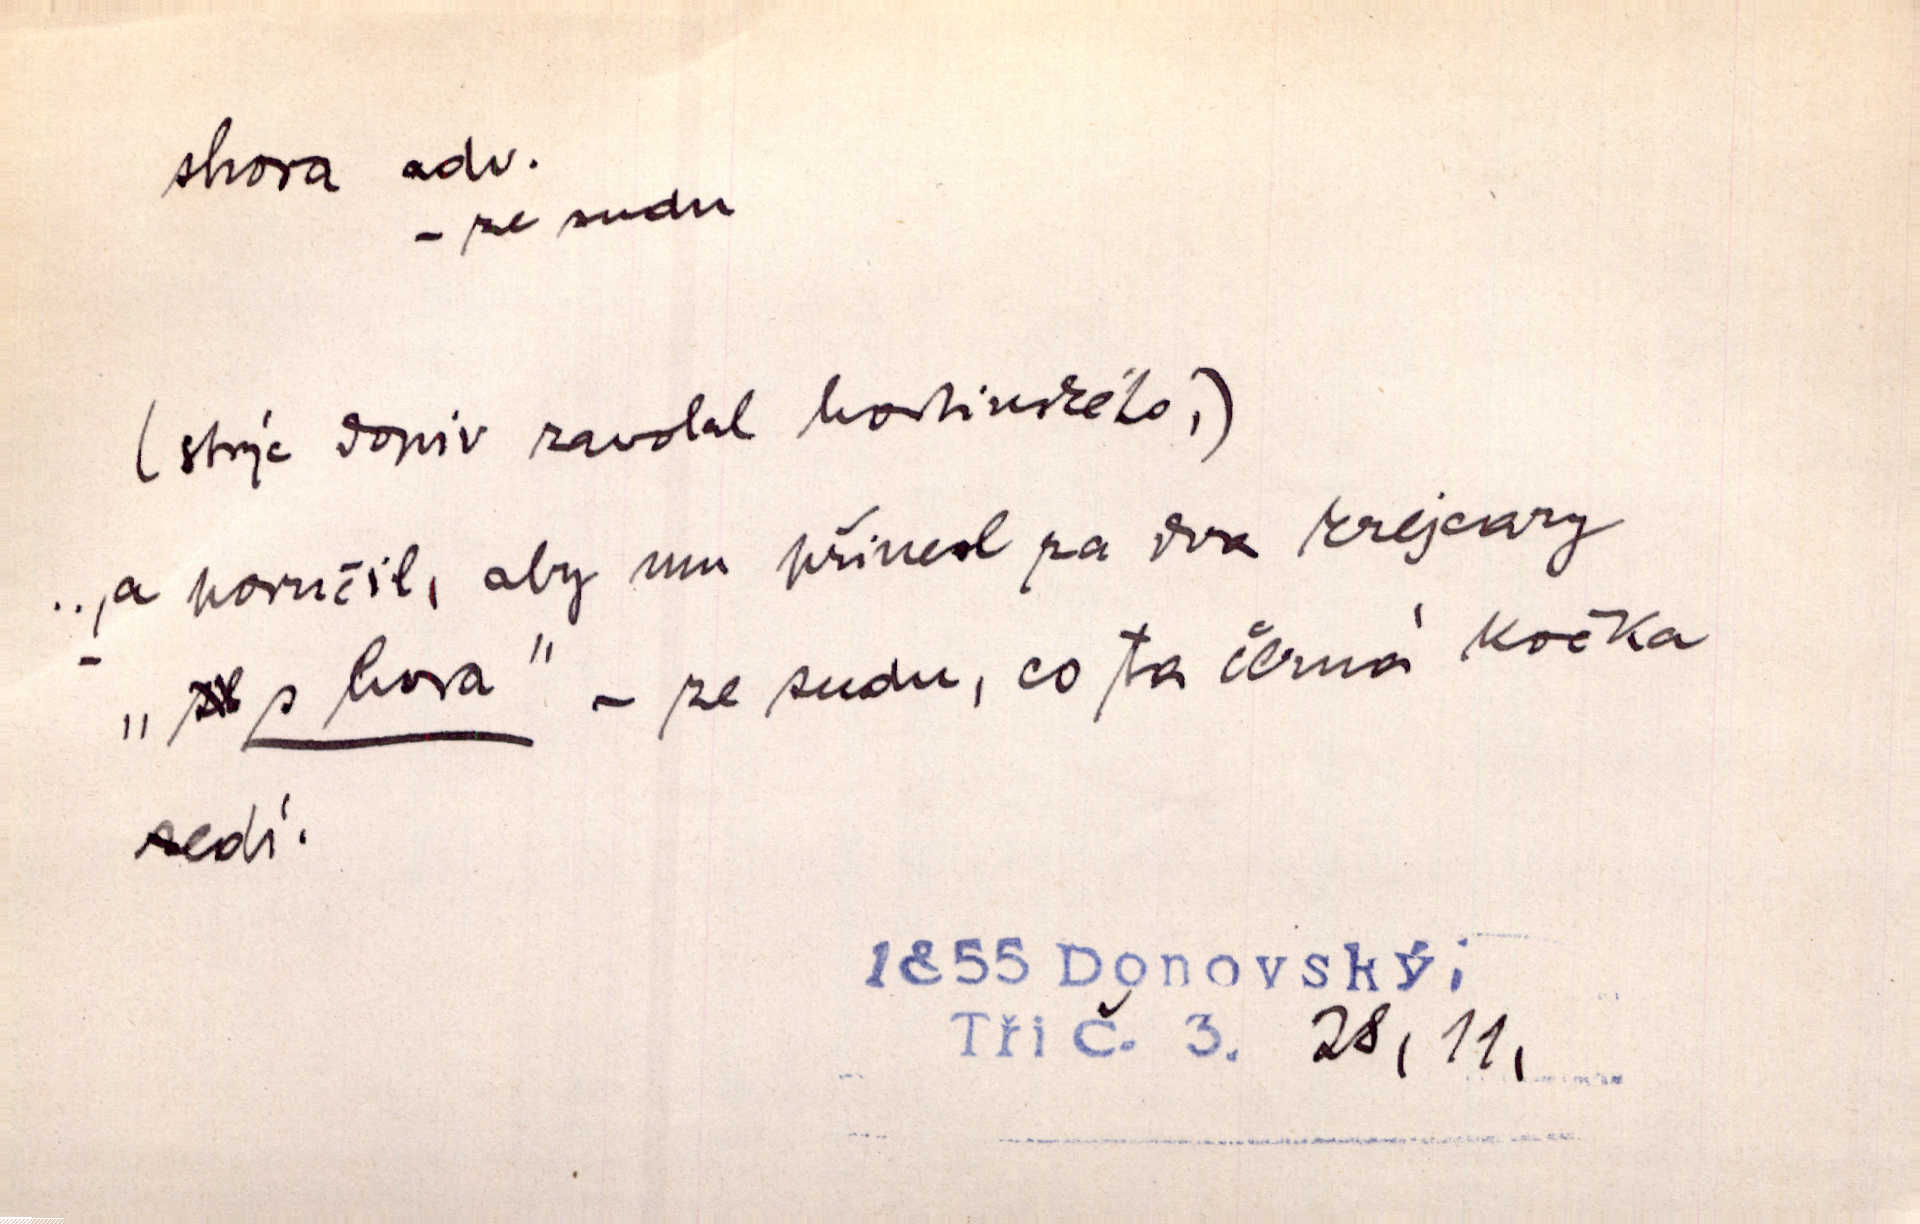 shora adv.
– ze sudu
(strýc dopiv zavolal hostinského,)
..,a poručil, aby mu přinesl za dva krejcary
– „s hora" – ze sudu, co ta černá kočka
sedí.
1855 Donovský;
Tři č. 3. 28, 11,